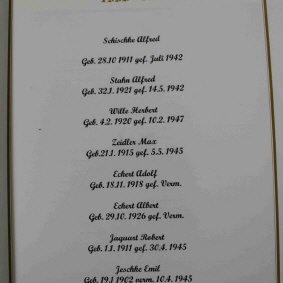 Schischke Alfred
Geb. 28.10 1911 gef. Juli 1942
Stahn Alfred
Geb. 32.1. 1921 gef. 14.5. 1942
Wille Herbert
Geb. 4.2. 1920 gef. 10.2. 1947
Zeidler Max
Geb.21.1. 1915 gef. 5.5. 1945
Eckert Adolf
Geb. 18.11. 1918 gef. Verm.
Eckert Albert
Geb. 29.10. 1926 gef. Verm.
Jaquart Robert
Geb. 1.1. 1911 gef. 30.4. 1945
Jeschke Emil
Geb. 19.1 1902 verm. 10.4. 1945